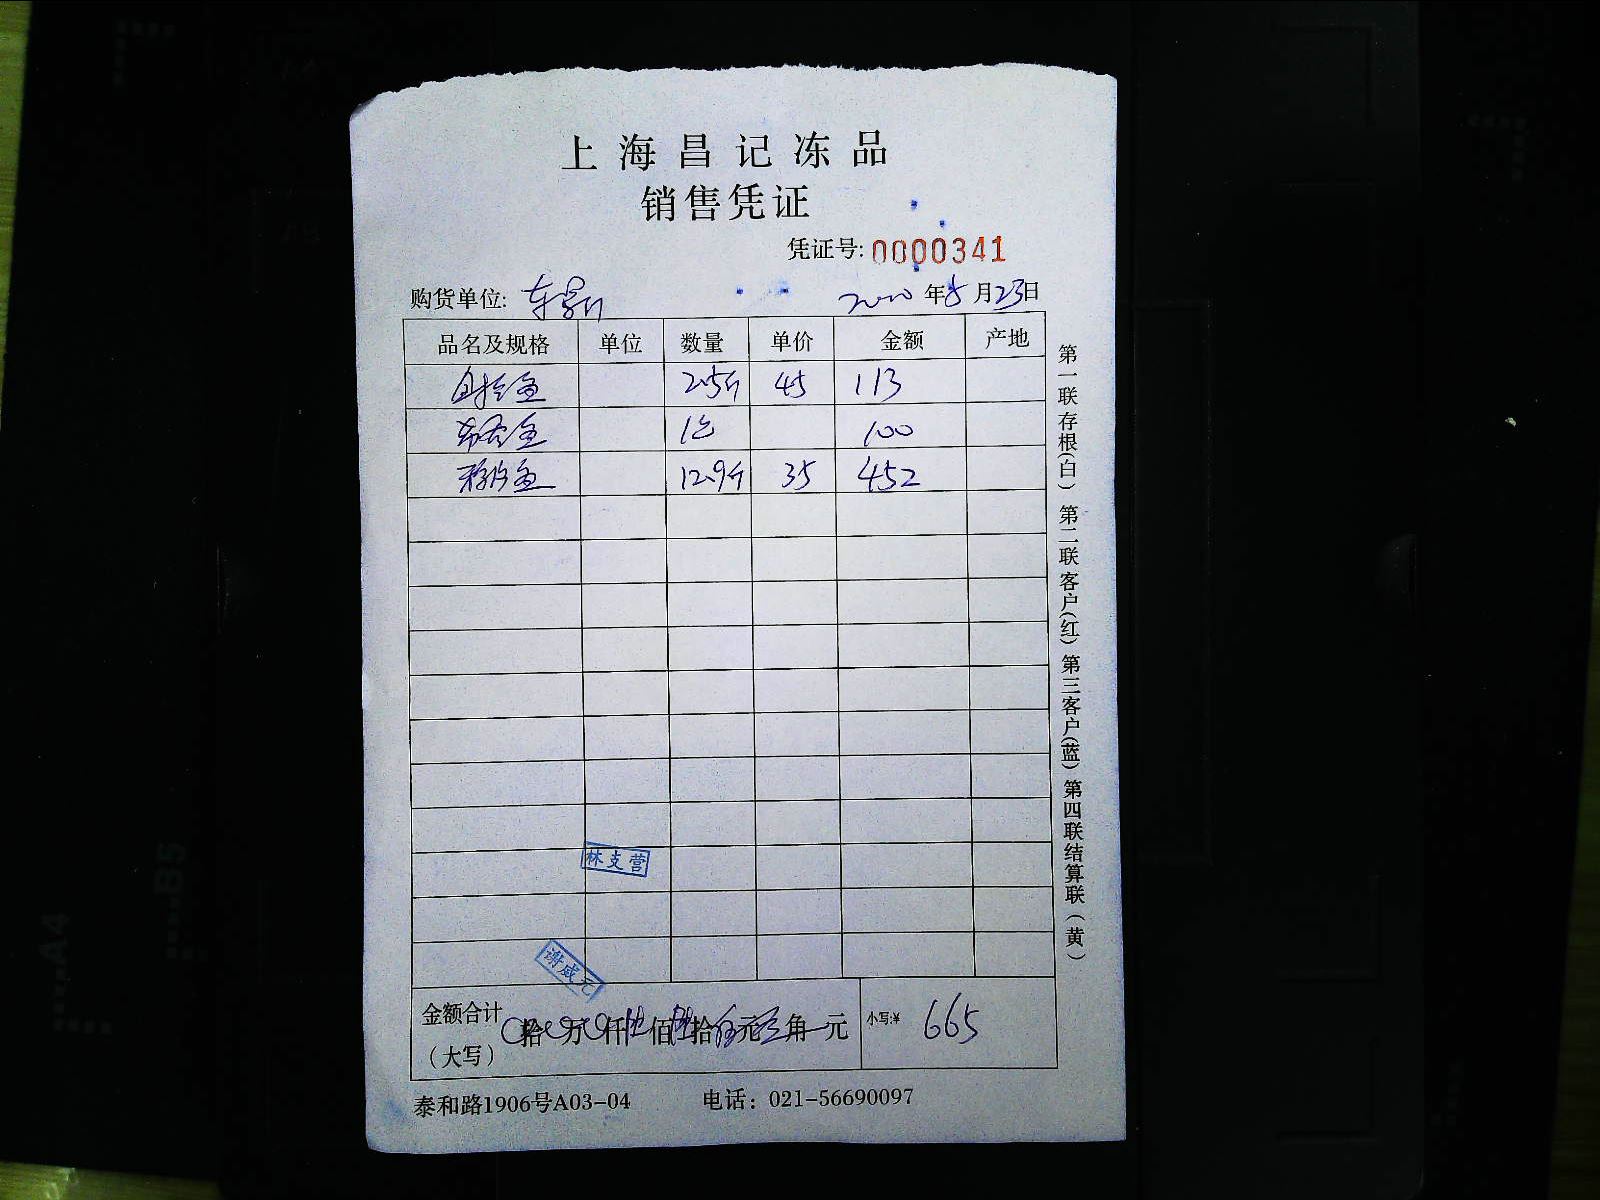 上海昌记冻品
销售凭证
凭证号: 0000341
购货单位:
2020年8月23日
品名及规格 单位 数量 单价 金额 产地
鱼 2.5斤 45 113
鱼 1包 100
鱼 12.9斤 35 452
林支营
谢成元
金额合计(大写) 拾 万 仟陆佰陆拾伍元 角 元 小写:¥ 665
泰和路1906号A03-04 电话：021-56690097
第一联存根(白) 第二联客户(红) 第三客户(蓝) 第四联结算联(黄)